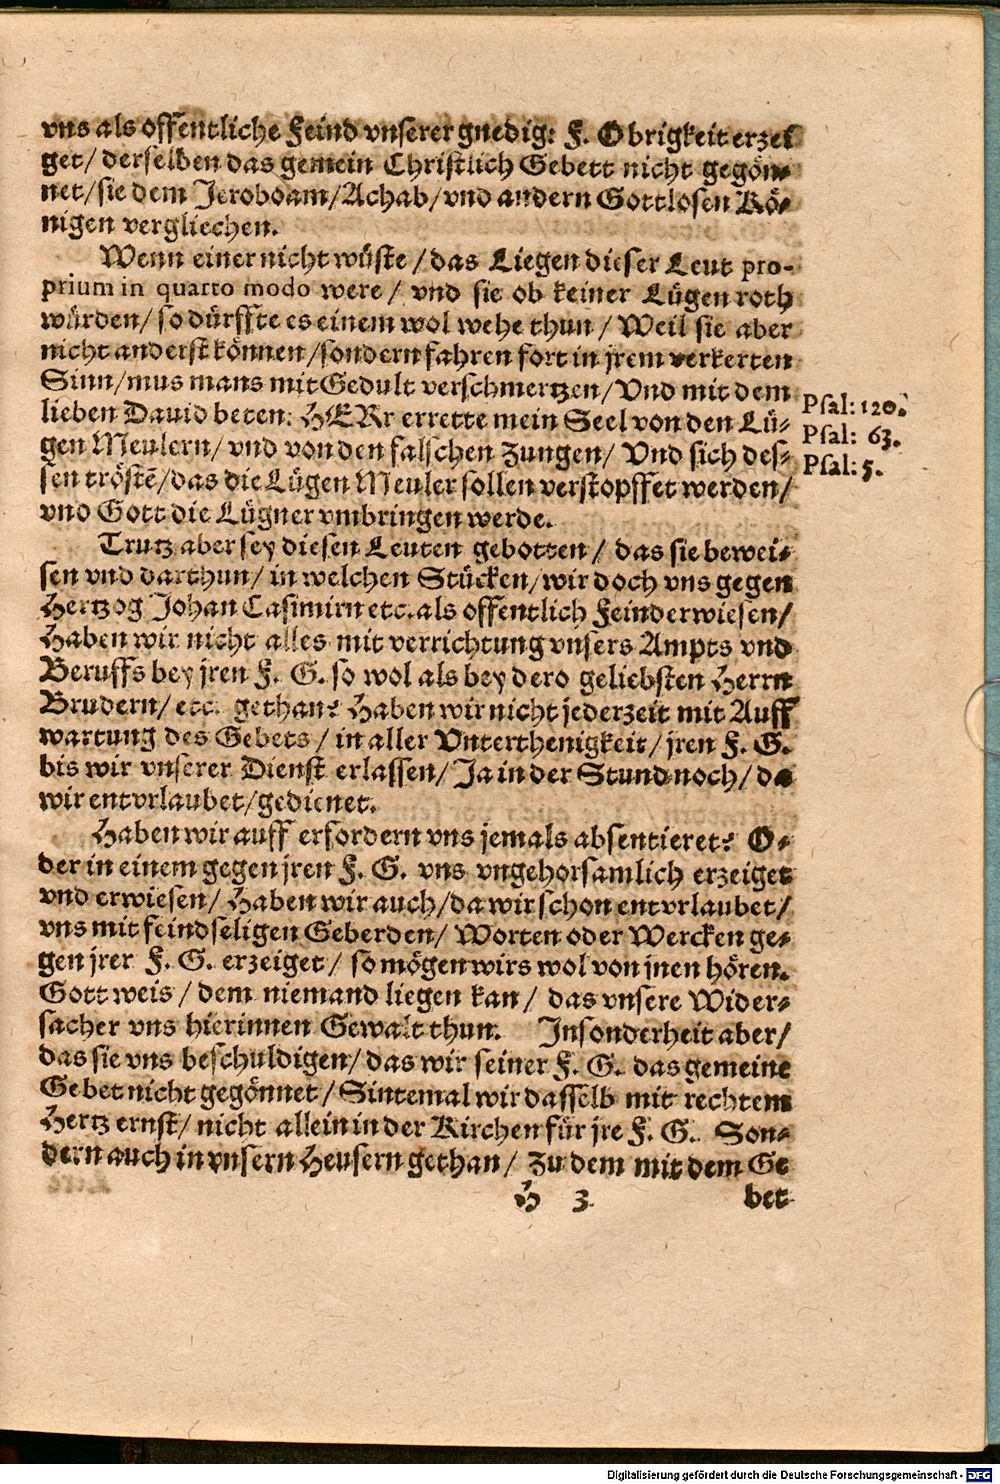 vns als offentliche Feind vnserer gnedig: F. Obrigkeit erzei
get/ derselben das gemein Christlich Gebett nicht gegön-
net/ sie dem Jeroboam/ Achab/ vnd andern Gottlosen Kö-
nigen vergliechen.
Wenn einer nicht wüste/ das Liegen dieser Leut pro-
prium in quarto modo were/ vnd sie ob keiner Lügen roth
würden/ so dürffte es einem wol wehe thun/ Weil sie aber
nicht anderst können/ sondern fahren fort in jrem verkerten
Sinn/ mus mans mit Gedult verschmertzen/ Vnd mit dem
lieben Dauid beten: HERr errette mein Seel von den Lü-
gen Meulern/ vnd von den falschen Zungen/ Vnd sich des-
sen tröstē/ das die Lügen Meuler sollen verstopffet werden/
vnd Gott die Lügner vmbringen werde.
Psal: 120.
Psal: 63.
Psal: 5.
Trutz aber sey diesen Leuten gebotten/ das sie bewei-
sen vnd darthun/ in welchen Stücken/ wir doch vns gegen
Hertzog Johan Casimirn etc. als offentlich Feind erwiesen/
Haben wir nicht alles mit verrichtung vnsers Ampts vnd
Beruffs bey jren F. G. so wol als bey dero geliebsten Herrn
Brudern/ etc. gethan? Haben wir nicht jederzeit mit Auff
wartung des Gebets/ in aller Vnterthenigkeit/ jren F. G.
bis wir vnserer Dienst erlassen/ Ja in der Stund noch/ da
wir entvrlaubet/ gedienet.
Haben wir auff erfordern vns jemals absentieret? O-
der in einem gegen jren F. G. vns vngehorsamlich erzeiget
vnd erwiesen/ Haben wir auch/ da wir schon entvrlaubet/
vns mit feindseligen Geberden/ Worten oder Wercken ge-
gen jrer F. G. erzeiget/ so mögen wirs wol von jnen hören.
Gott weis/ dem niemand liegen kan/ das vnsere Wider-
sacher vns hierinnen Gewalt thun. Insonderheit aber/
das sie vns beschuldigen/ das wir seiner F. G. das gemeine
Gebet nicht gegönnet/ Sintemal wir dasselb mit rechtem
Hertz ernst/ nicht allein in der Kirchen für jre F. G. Son-
dern auch in vnsern Heusern gethan/ Zu dem mit dem Ge
H 3 bet
Digitalisierung gefördert durch die Deutsche Forschungsgemeinschaft - DFG